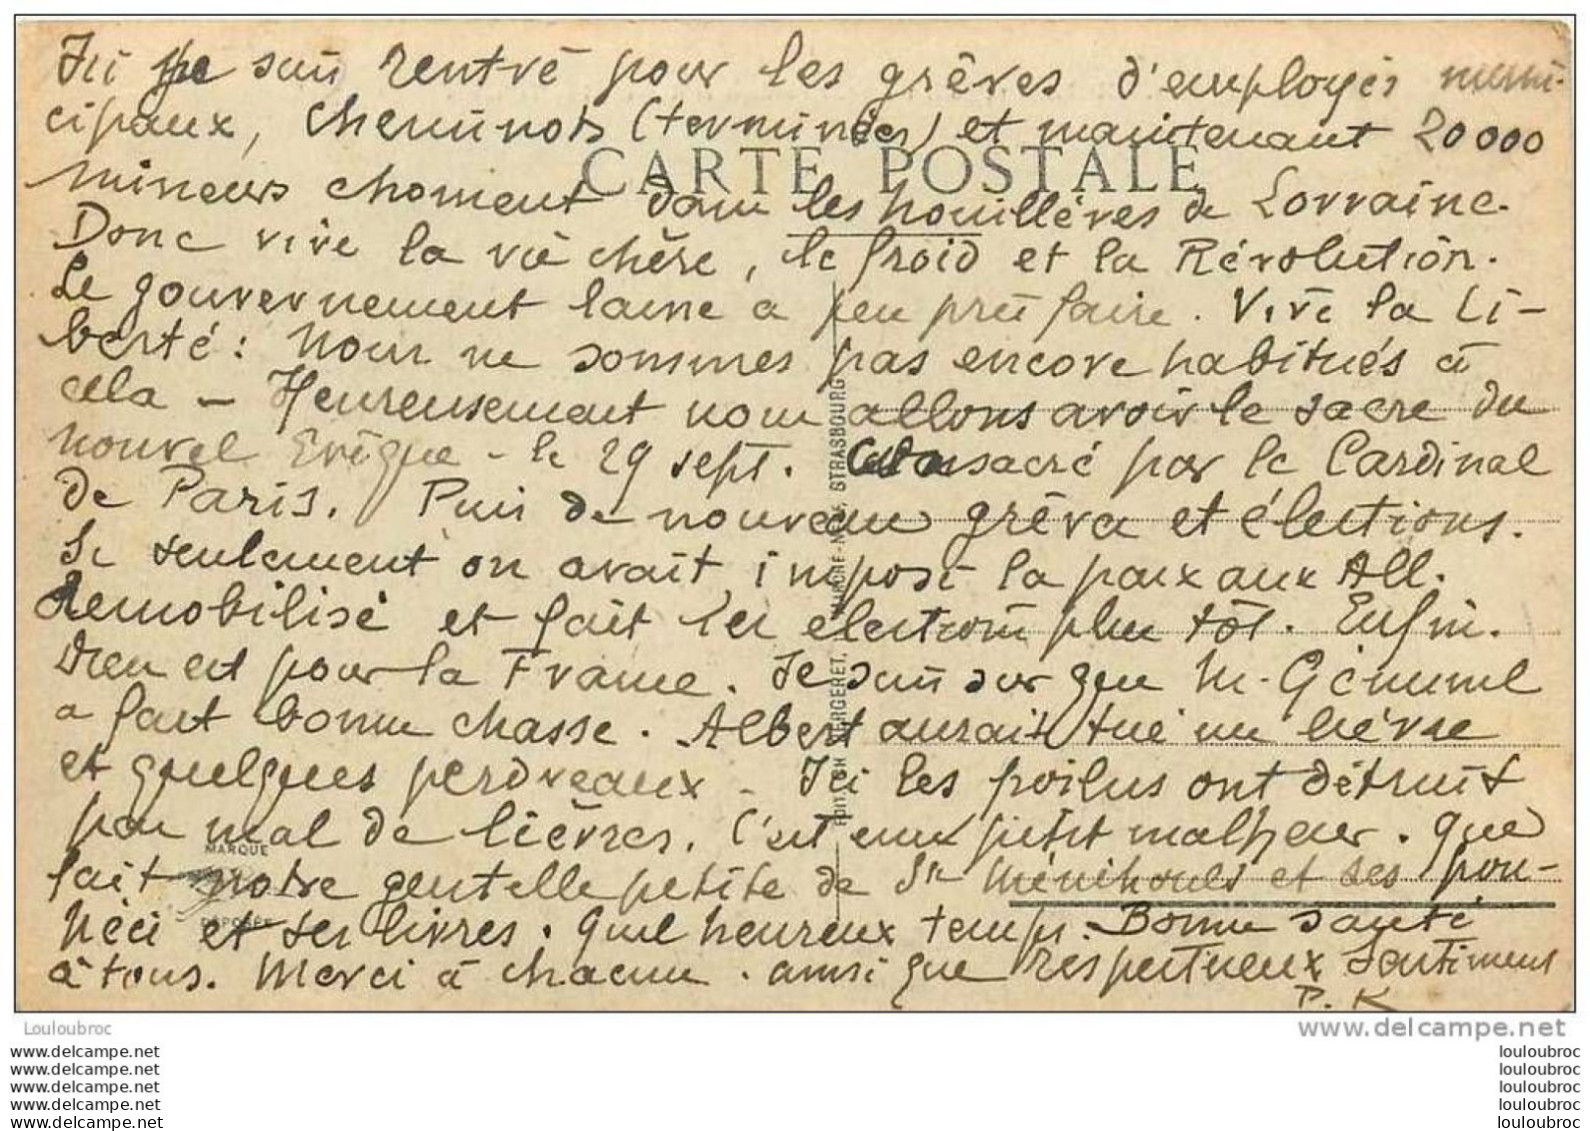 Ici je suis rentré pour les grèves d'employés muni-
cipaux, cheminots (terminées) et maintenant 20000
CARTE POSTALE
mineurs choment dans les houillères de Lorraine.
Donc vive la vie chère, le froid et la Révolution.
Le gouvernement laine a peu près faire. Vive la Li-
berté: Nous ne sommes pas encore habitués à
cela - Heureusement nous allons avoir le sacre du
nouvel Evêque - le 29 sept. consacré par le Cardinal
de Paris. Puis de nouveau grève et élections.
Si seulement on avait imposé la paix aux All.
démobilisé et fait les elections plus tôt. Enfin.
Dieu est pour la France. Je suis sur que M. Gémmel
a fait bonne chasse. Albert aurait tué un lièvre
et quelques perdreaux - Ici les poilus ont détruit
pas mal de lièvres. C'est un petit malheur. Que
MARQUE
fait notre gentille petite de Ste Ménihoules et ses pou-
DÉPOSÉE
Néci et ses livres. Quel heureux temps. Bonne santé
à tous. Merci à chacun. ainsi que respectueux sentiment
P. K
STRASBOURG
BERGERET,
Louloubroc
www.delcampe.net
www.delcampe.net
www.delcampe.net
www.delcampe.net
www.delcampe.net
www.delcampe.net
louloubroc
louloubroc
louloubroc
louloubroc
louloubroc